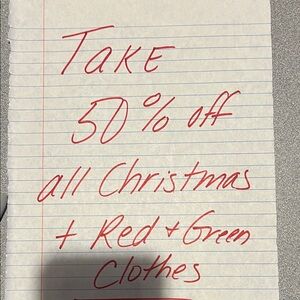 TAKE
50% off
all Christmas
+ Red + Green
Clothes